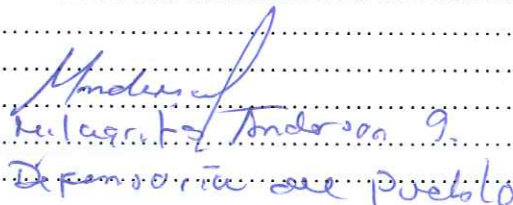 Milagritos Anderson G.
Defensoría del Pueblo